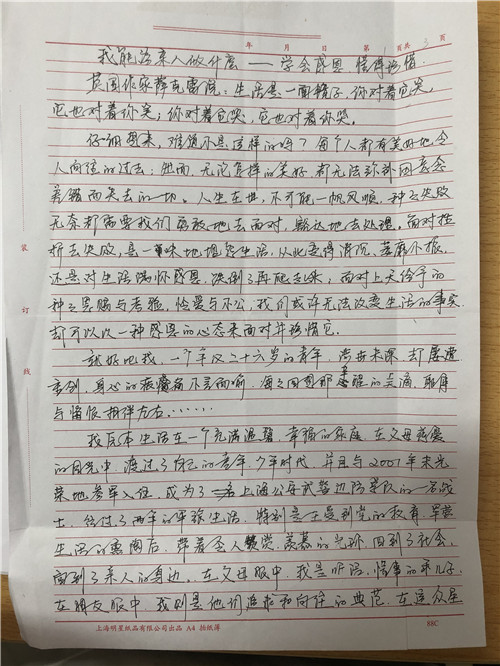 年 月 日 第 页共 3 页
我能为亲人做什么 — 学会感恩 懂得珍惜
英国作家萨克雷说：生活是一面镜子，你对着它笑，
它也对着你笑；你对着它哭，它也对着你哭。
仔细想来，难道不是这样的吗？每个人都有美好地令
人向往的过去；然而，无论怎样的美好，都无法弥补因意念
差错而失去的一切。人生在世，不可能一帆风顺，种种失败
无奈都需要我们勇敢地去面对，豁达地去处理。面对挫
折与失败，是一味地埋怨生活，从此变得消沉、萎靡不振，
还是对生活满怀感恩，跌倒了再爬起来；面对上天给予的
种种恩赐与考验，恰爱与不公，我们或许无法改变生活的事实
却可以以一种感恩的心态来面对并珍惜它。
就好比我，一个年仅二十六岁的青年，涉世未深，却屡遭
身心的疼痛不言而喻，每之回首那 的点滴，
与悔恨相伴左右……
我原本生活在一个充满温馨、幸福的家庭，在父母慈爱
的目光中，渡过了自己的童年、少年时代，并且与2007年末光
荣地参军入伍，成为了上海公安武警边防部队的一名战
士，经过了两年的军旅生活，特别是在受到党的教育、军营
生活的熏陶后，带着 羡慕的光环，回到了社会，
回到了亲人的身边，在父母眼中，我是听话，懂事的乖儿子，
在朋友眼中，我则是他们追求和向往的典范，在这众星
装
订
线
上海明星纸品有限公司出品 A4 拍纸簿
88C